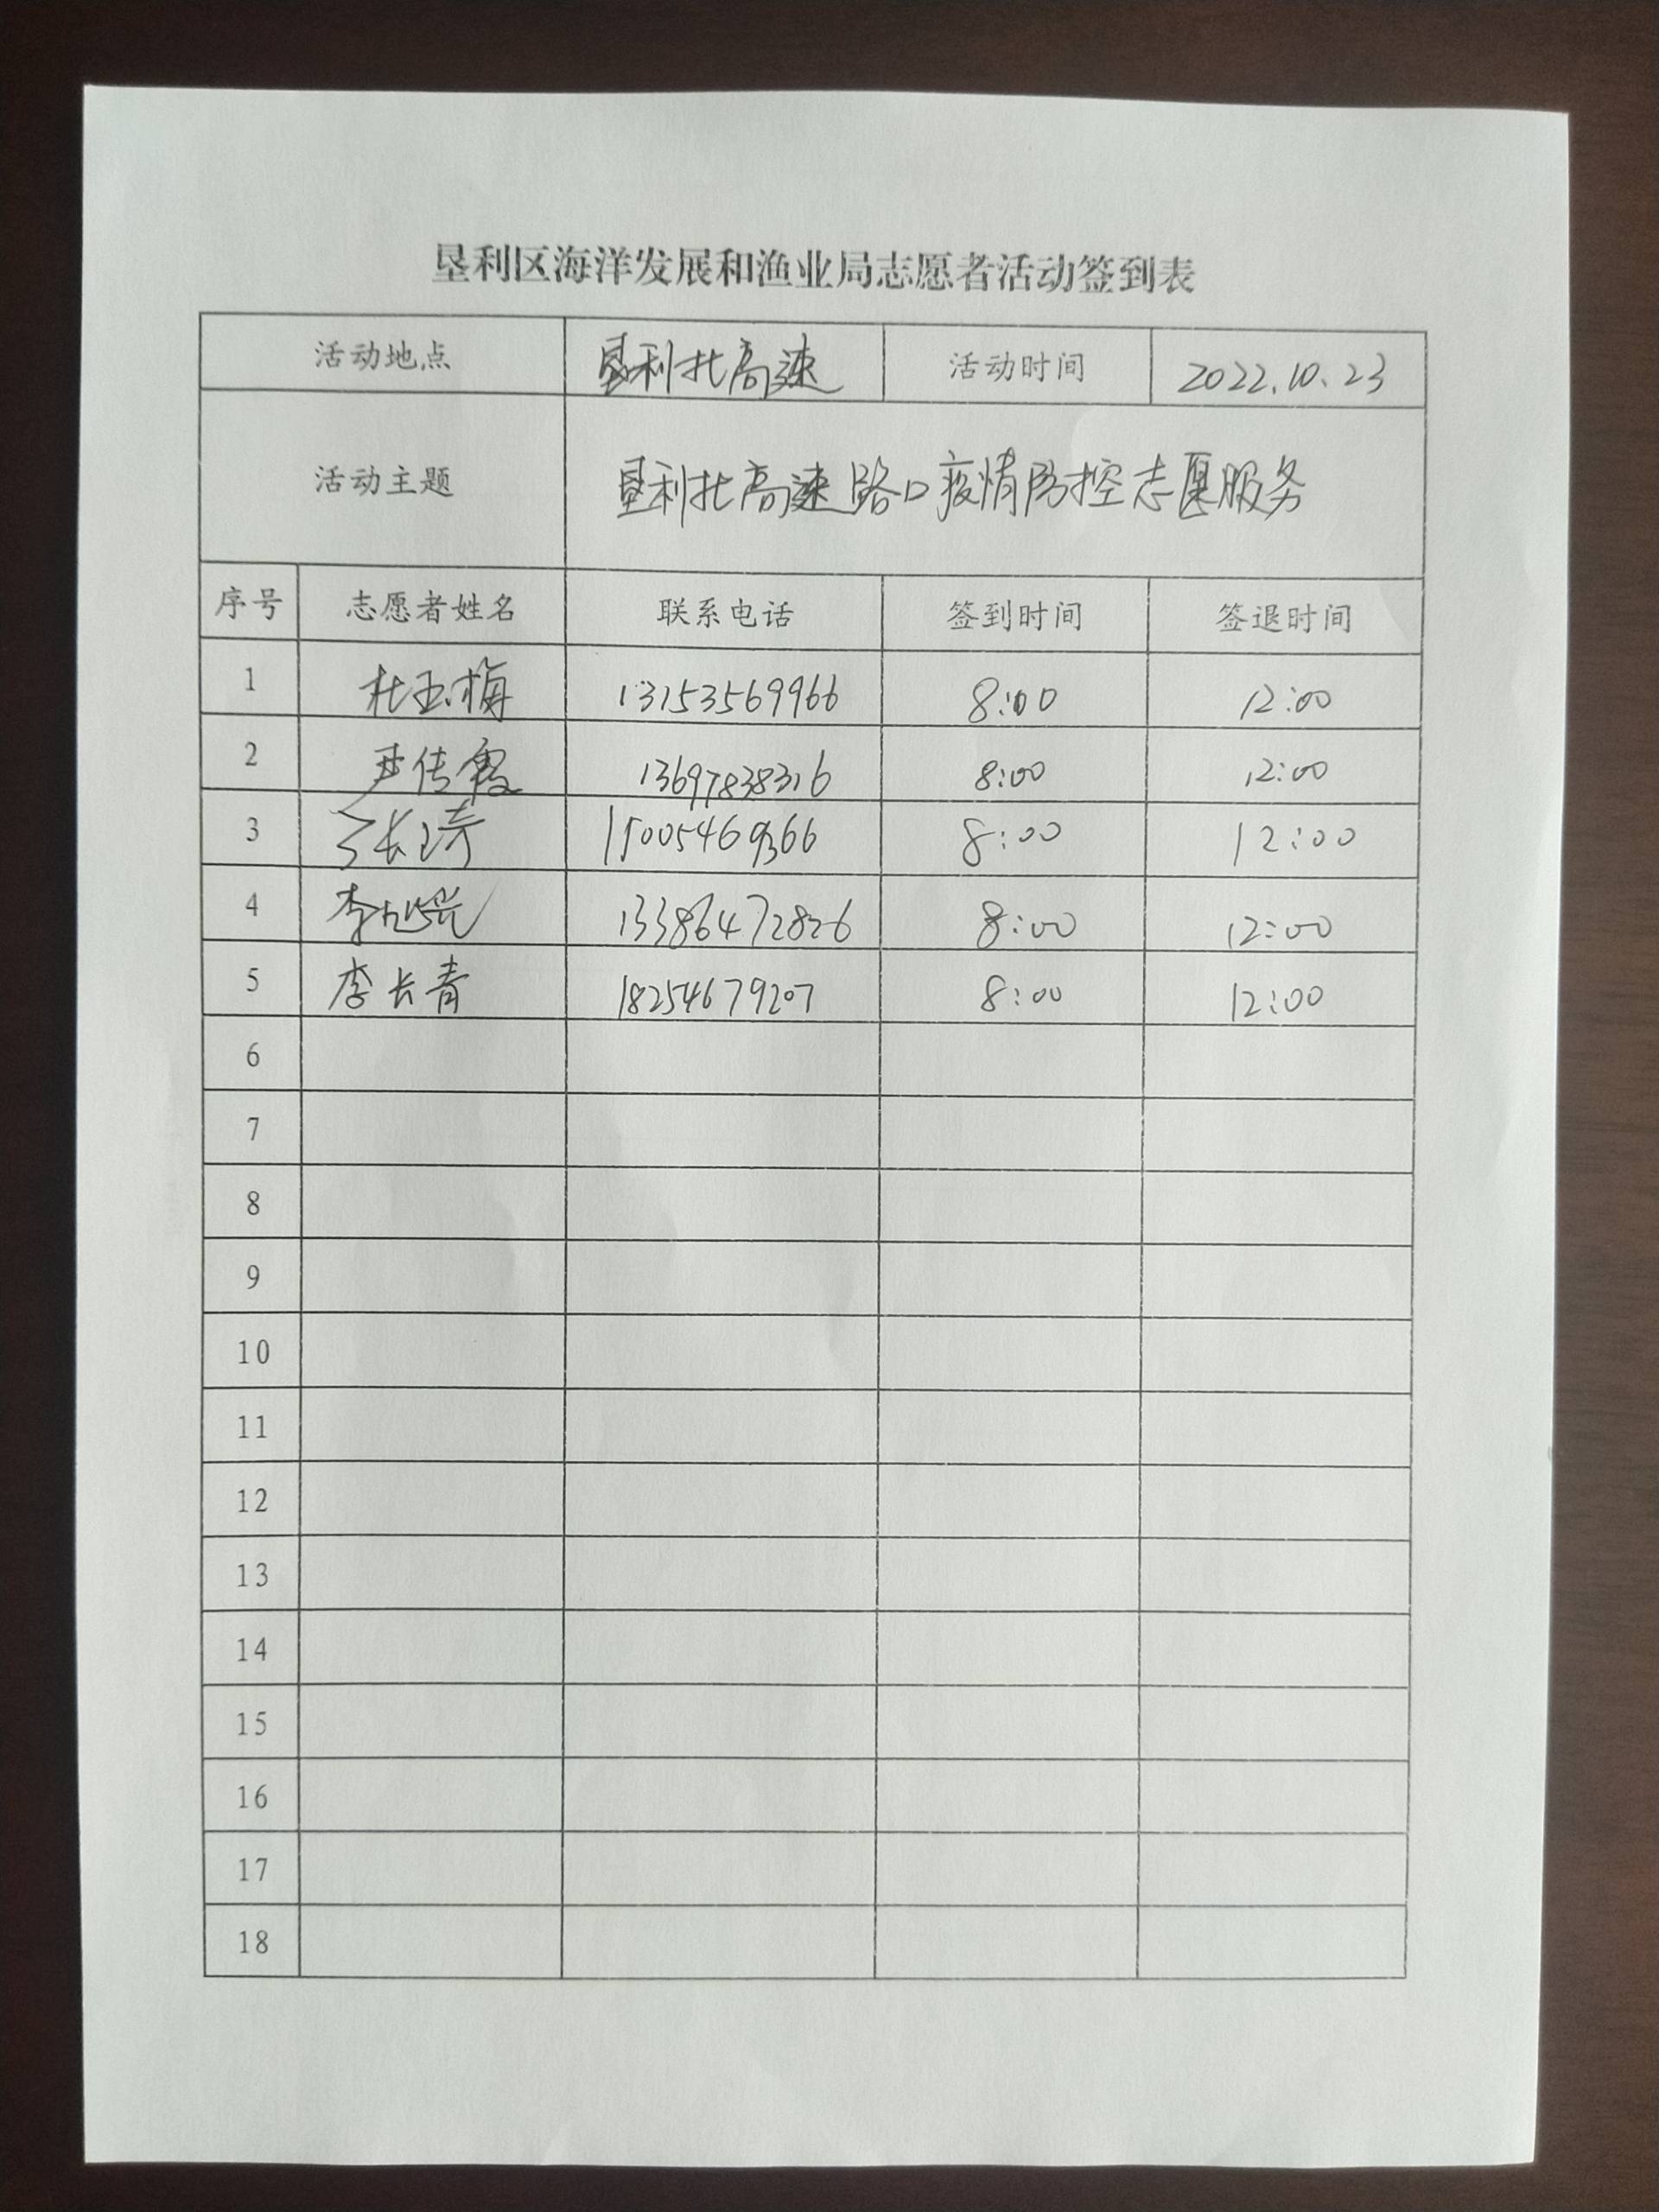 垦利区海洋发展和渔业局志愿者活动签到表
活动地点 垦利北高速 活动时间 2022.10.23
活动主题 垦利北高速路口疫情防控志愿服务
序号 志愿者姓名 联系电话 签到时间 签退时间
1 杜玉梅 13153569966 8:00 12:00
2 尹传霞 13697838316 8:00 12:00
3 张琦 15005469366 8:00 12:00
4 李旭光 13386472826 8:00 12:00
5 李长青 18254679207 8:00 12:00
6
7
8
9
10
11
12
13
14
15
16
17
18